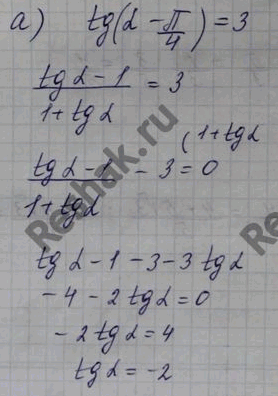 а) tg(α - π/4) = 3
(tgα - 1)/(1 + tgα) = 3
(1 + tgα
(tgα - 1)/(1 + tgα) - 3 = 0
tgα - 1 - 3 - 3tgα
-4 - 2tgα = 0
-2tgα = 4
tgα = -2
Reshak.ru